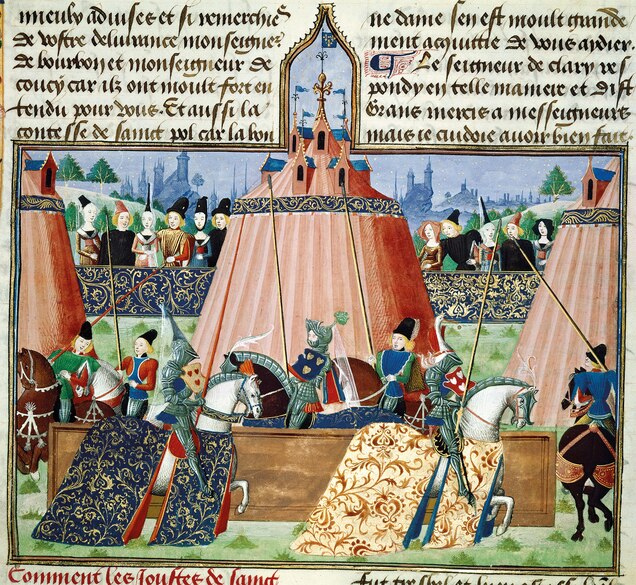 mieulx aduises et si remerchies
de vostre deliurance monseigner
de bourbon et monseigneur de
coucy car ilz ont moult fort en
tendu pour vous. Et aussi la
contesse de sainct pol car la bon
ne dame sen est moult grande
ment acquittie de vous aydier.
Le seigneur de clary res
pondy en telle maniere et dist
Grans mercis a messeigneurs
mais ie cuidoie auoir bien fait
Comment les Joustes de sainct